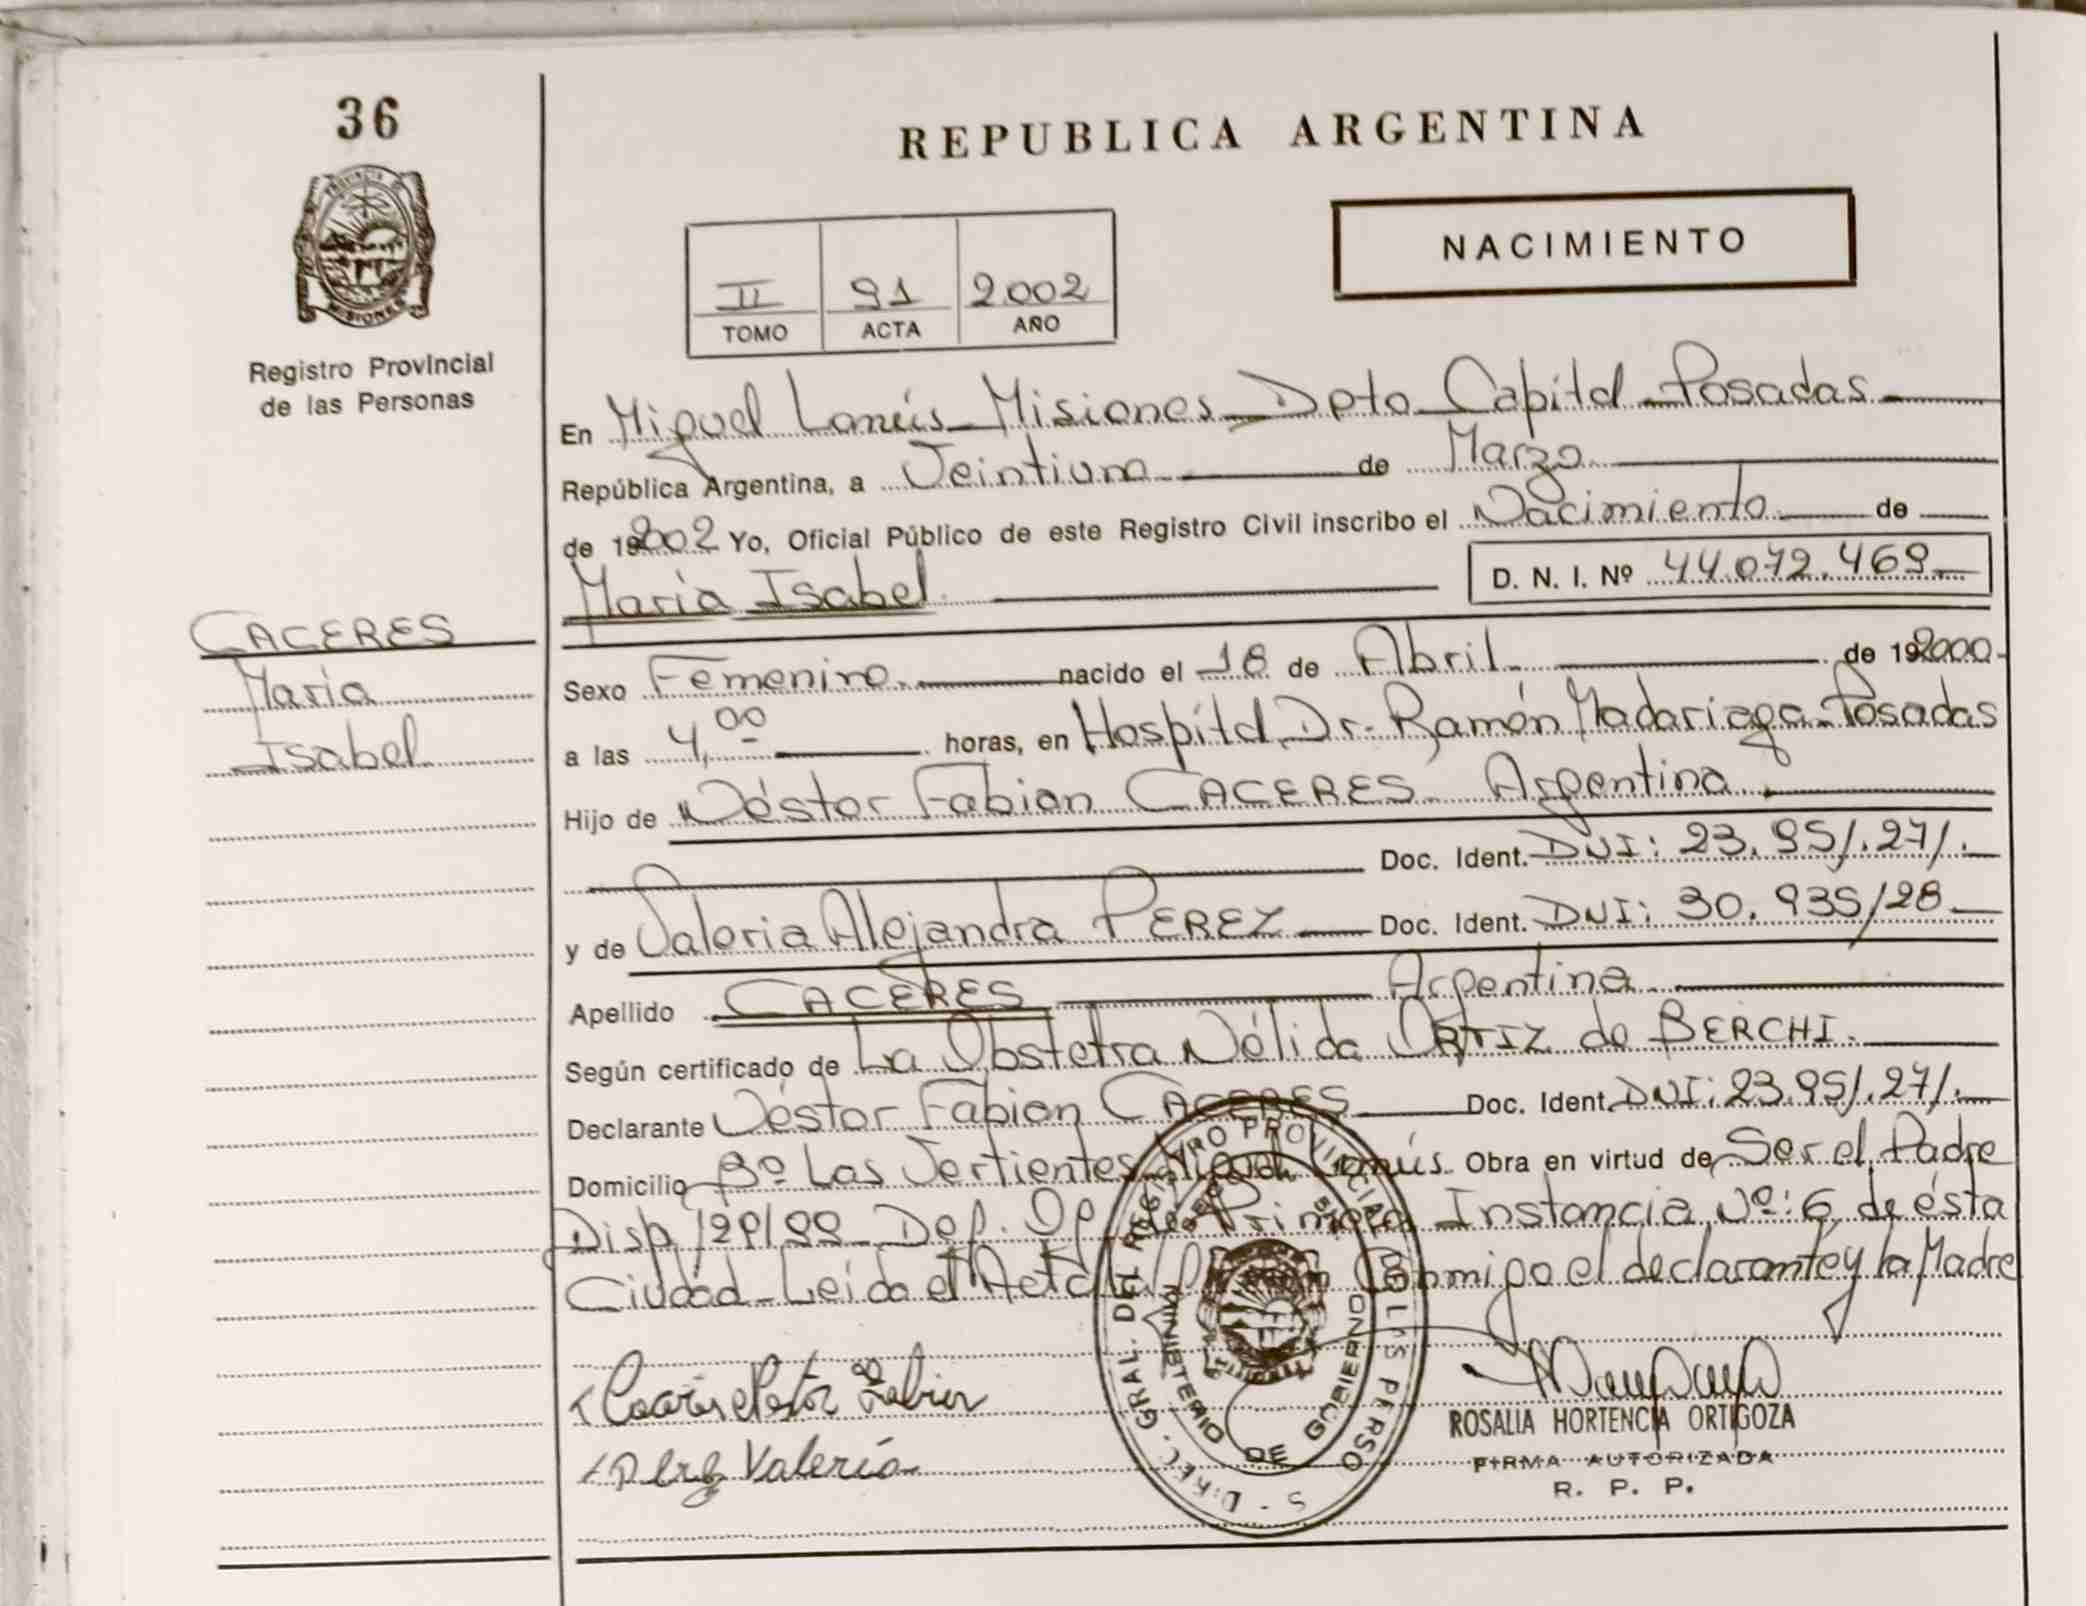 36
REPUBLICA ARGENTINA
PROVINCIA DE
MISIONES
Registro Provincial
de las Personas
NACIMIENTO
II 91 2002
TOMO ACTA AÑO
En Miguel Lanús Misiones Dpto Capital Posadas
República Argentina, a Veintiuno de Marzo
de 192002 Yo, Oficial Público de este Registro Civil inscribo el Nacimiento de
María Isabel D. N. I. Nº 44.072.469
CACERES
María
Isabel
Sexo Femenino nacido el 18 de Abril de 192000
a las 4,00 horas, en Hospital Dr. Ramón Madariaga Posadas
Hijo de Néstor Fabian CACERES Argentina
Doc. Ident. DNI: 23.951.271.
y de Valeria Alejandra PEREZ Doc. Ident. DNI: 30.935128
Apellido CACERES Argentina
Según certificado de La Obstetra Nélida ORTIZ de BERCHI.
Declarante Néstor Fabian CACERES Doc. Ident. DNI: 23.951.271.
Domicilio Bº Las Vertientes Miguel Lanús Obra en virtud de Ser el Padre
Disp 129/99 Def. Of. de Primera Instancia Nº: 6 de ésta
Ciudad Leida el Acta la Conmigo el declarante y la Madre
Perez Valeria
S - DIREC. GRAL. DEL REGISTRO PROVINCIAL DE LAS PERSO
MINISTERIO DE GOBIERNO
ROSALIA HORTENCIA ORTIGOZA
FIRMA AUTORIZADA
R. P. P.